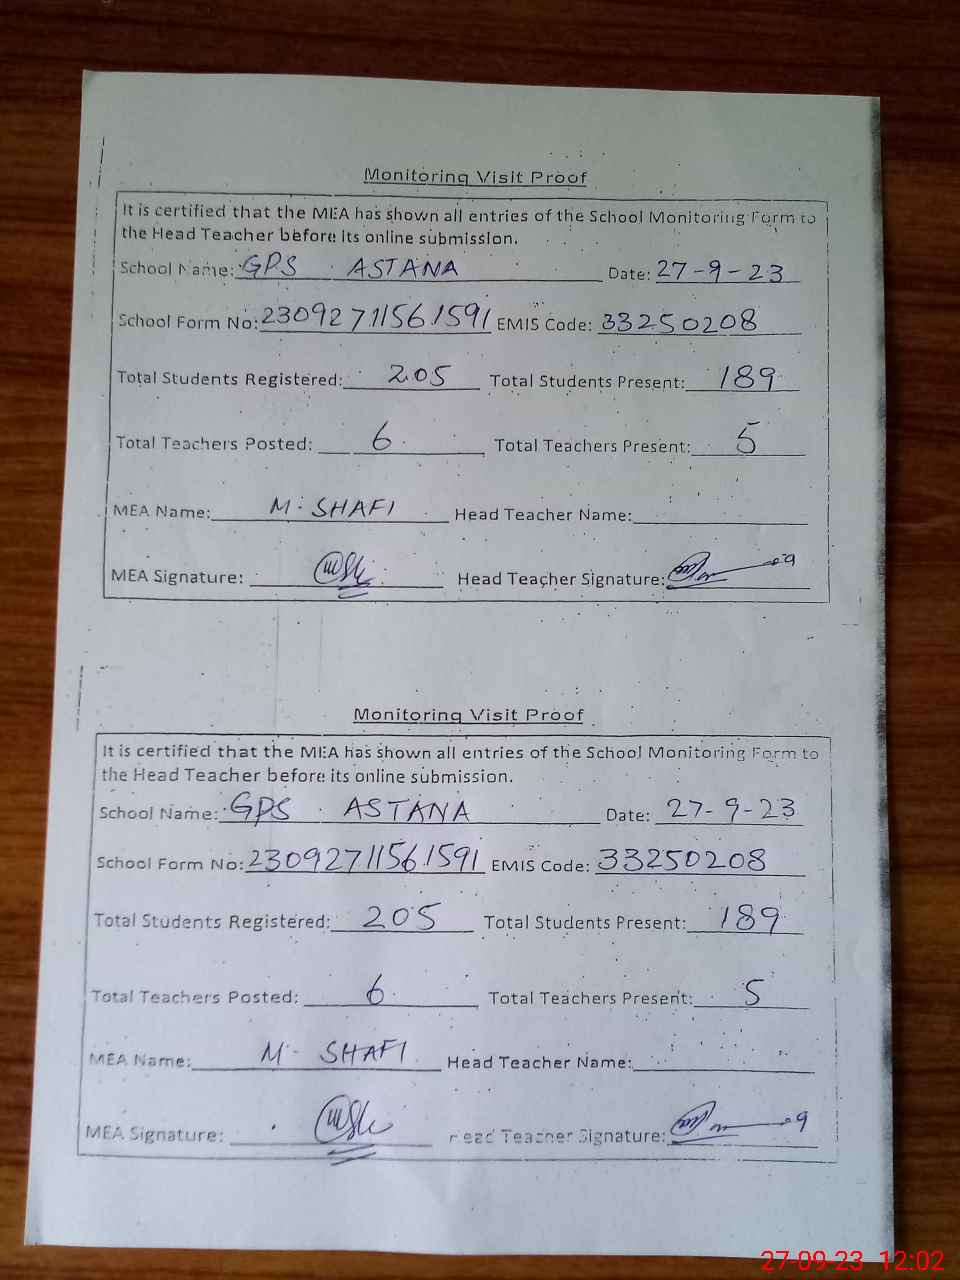 Monitoring Visit Proof
It is certified that the MEA has shown all entries of the School Monitoring Form to
the Head Teacher before its online submission.
School Name: GPS ASTANA Date: 27-9-23
School Form No: 23092711561591 EMIS Code: 33250208
Total Students Registered: 205 Total Students Present: 189
Total Teachers Posted: 6 Total Teachers Present: 5
MEA Name: M. SHAFI Head Teacher Name:
MEA Signature: Head Teacher Signature:
Monitoring Visit Proof
It is certified that the MEA has shown all entries of the School Monitoring Form to
the Head Teacher before its online submission.
School Name: GPS ASTANA Date: 27-9-23
School Form No: 23092711561591 EMIS Code: 33250208
Total Students Registered: 205 Total Students Present: 189
Total Teachers Posted: 6 Total Teachers Present: 5
MEA Name: M- SHAFI Head Teacher Name:
MEA Signature: Head Teacher Signature:
27-09-23 12:02